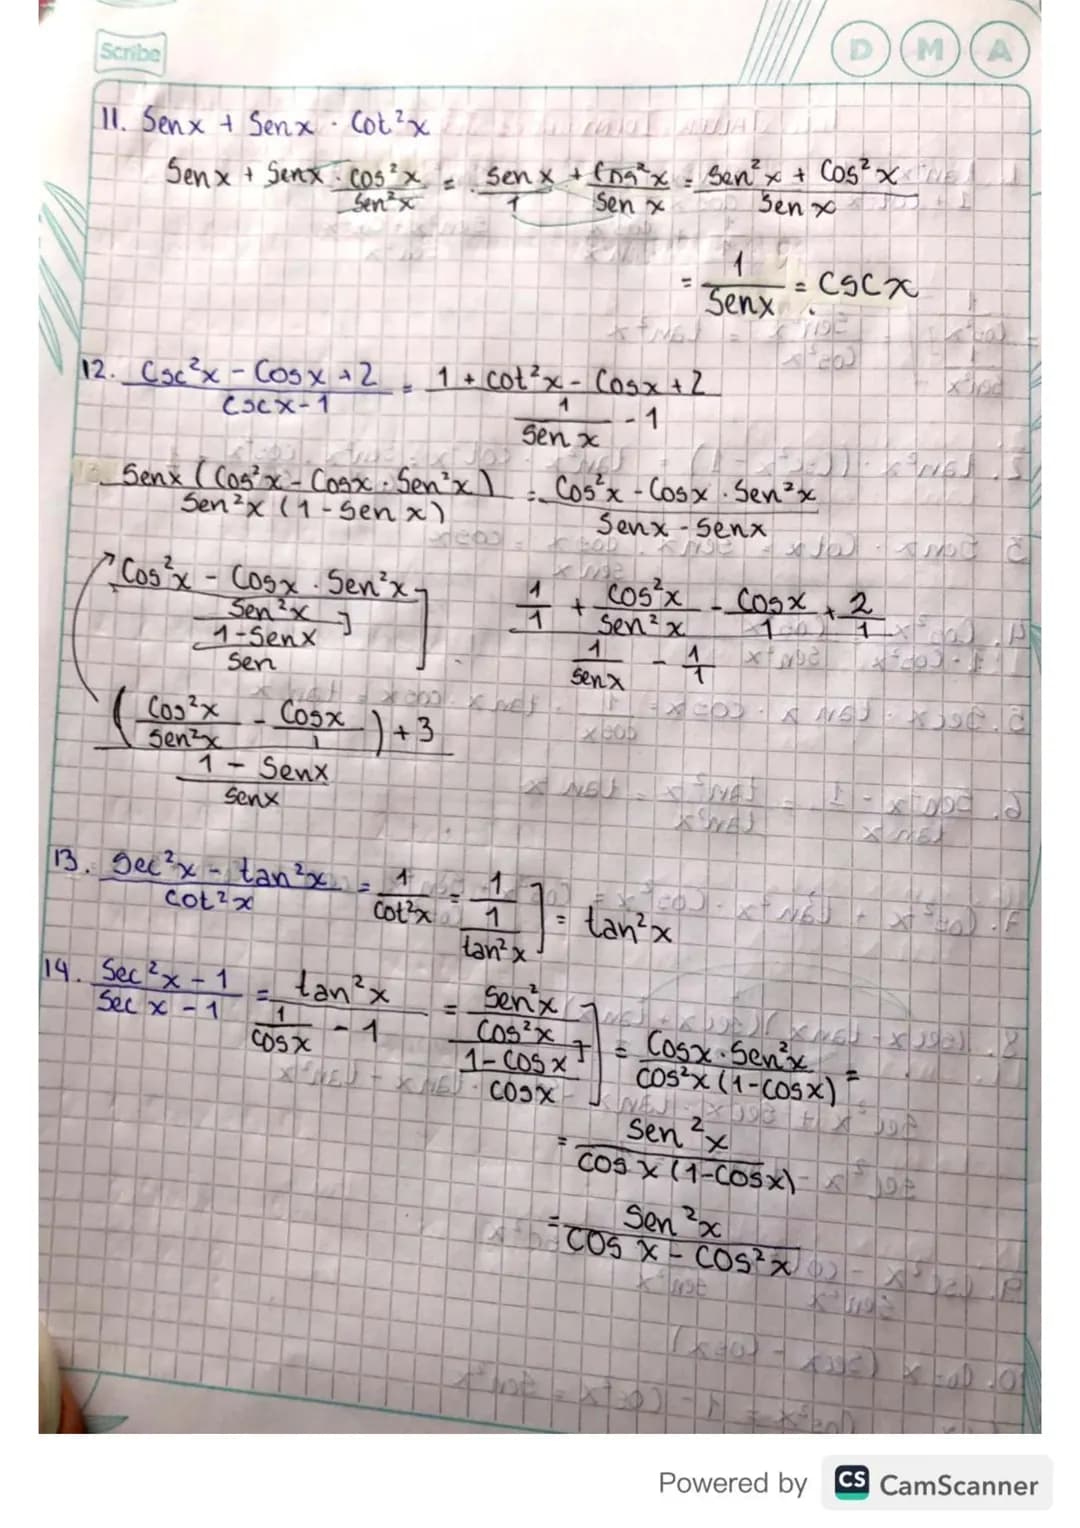 Scribe
D M A
11. Senx + Senx · Cot²x
Senx + Senx · cos²x/Sen²x = Senx/1 + Cos²x/Sen x = Sen²x + Cos²x/Sen x
= 1/Senx = CSCX
12. Csc²x - Cosx + 2/Cscx - 1 = 1 + cot²x - Cosx + 2/1/Sen x - 1
Senx (Cos²x - Cosx · Sen²x)/Sen²x (1 - Sen x) = Cos²x - Cosx · Sen²x/Senx - Senx
Cos²x - Cosx · Sen²x/Sen²x/1 - Senx/Sen
1/1 + Cos²x/Sen²x - Cosx/1 + 2/1/1/Senx - 1/1
(Cos²x/Sen²x - Cosx/1) + 3/1 - Senx/Senx
13. Sec²x - tan²x/Cot²x = 1/Cot²x = 1/1/tan²x] = tan²x
14. Sec²x - 1/Sec x - 1 = tan²x/1/cosx - 1 = Sen²x/Cos²x/1 - cosx/cosx] = Cosx · Sen²x/Cos²x (1 - cosx) =
= Sen²x/Cos x (1 - Cosx)
= Sen²x/Cos x - Cos²x
Powered by CS CamScanner